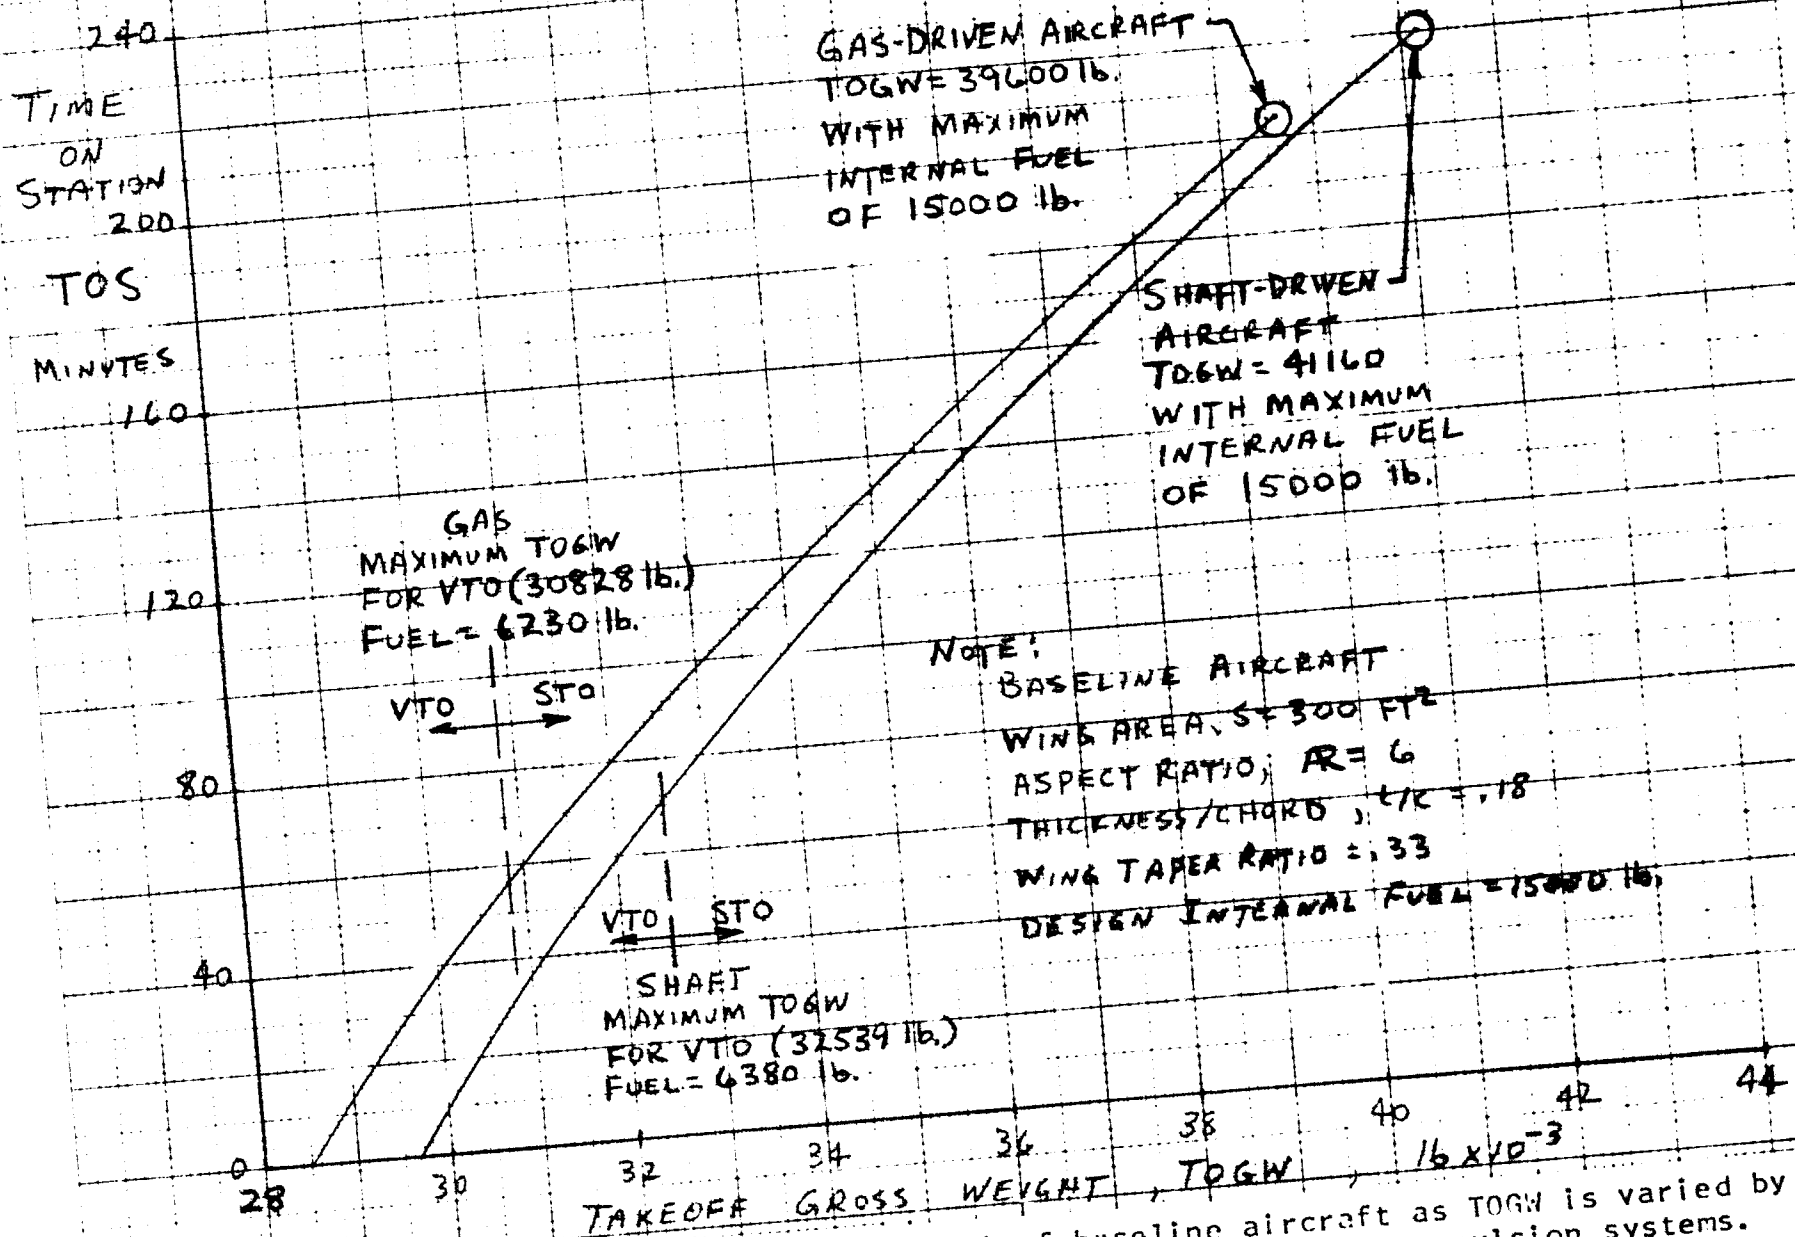 240
TIME
ON
STATION
200
TOS
MINUTES
160
120
80
40
0
GAS-DRIVEN AIRCRAFT
TOGW = 39600 lb.
WITH MAXIMUM
INTERNAL FUEL
OF 15000 lb.
SHAFT-DRIVEN
AIRCRAFT
TOGW = 41160
WITH MAXIMUM
INTERNAL FUEL
OF 15000 lb.
GAS
MAXIMUM TOGW
FOR VTO (30828 lb.)
FUEL = 6230 lb.
VTO STO
NOTE:
BASELINE AIRCRAFT
WING AREA, S = 300 FT²
ASPECT RATIO, AR = 6
THICKNESS/CHORD, t/c = .18
WING TAPER RATIO = .33
DESIGN INTERNAL FUEL = 15000 lb.
VTO STO
SHAFT
MAXIMUM TOGW
FOR VTO (32539 lb.)
FUEL = 6380 lb.
28 30 32 34 36 38 40 42 44
TAKEOFF GROSS WEIGHT, TOGW, lb x 10⁻³
baseline aircraft as TOGW is varied by
systems.